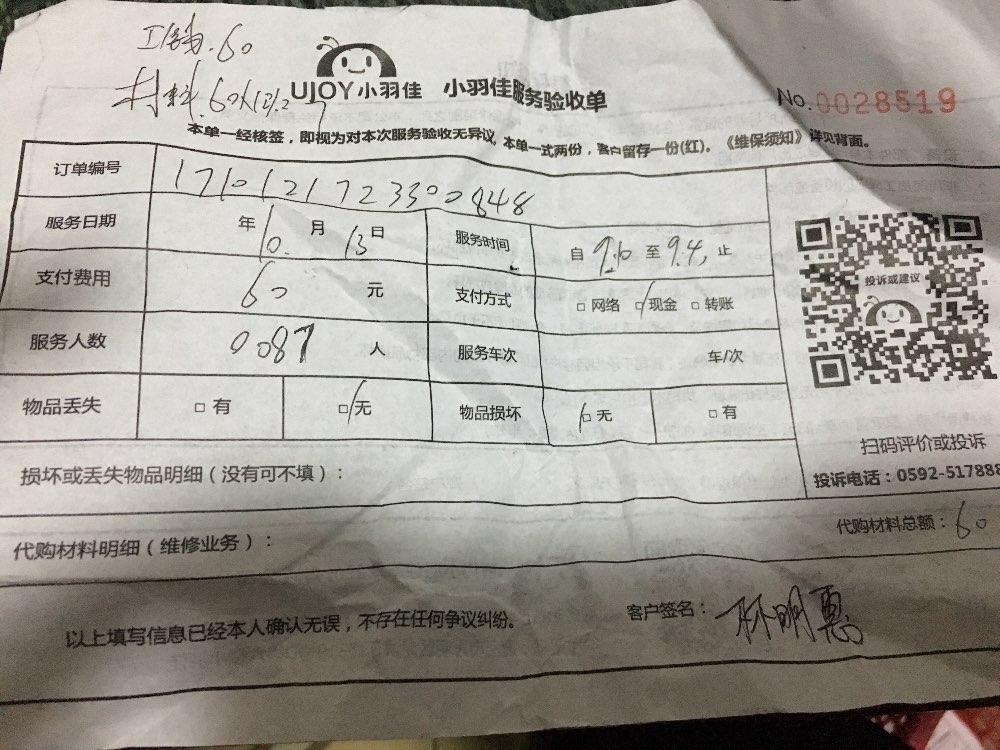 工钱.60
材料.60
UJOY小羽佳 小羽佳服务验收单
No.0028519
本单一经核签，即视为对本次服务验收无异议,本单一式两份，客户留存一份(红)。《维保须知》详见背面。
订单编号 171012172330 0848
服务日期 年 10 月 13 日 服务时间 自 至 止
支付费用 60 元 支付方式 □网络 □现金 □转账
服务人数 0087 人 服务车次 车/次
物品丢失 □有 □无 物品损坏 □无 □有
投诉或建议
扫码评价或投诉
投诉电话：0592-517888
损坏或丢失物品明细（没有可不填）：
代购材料明细（维修业务）： 代购材料总额：60
以上填写信息已经本人确认无误，不存在任何争议纠纷。 客户签名：林明惠